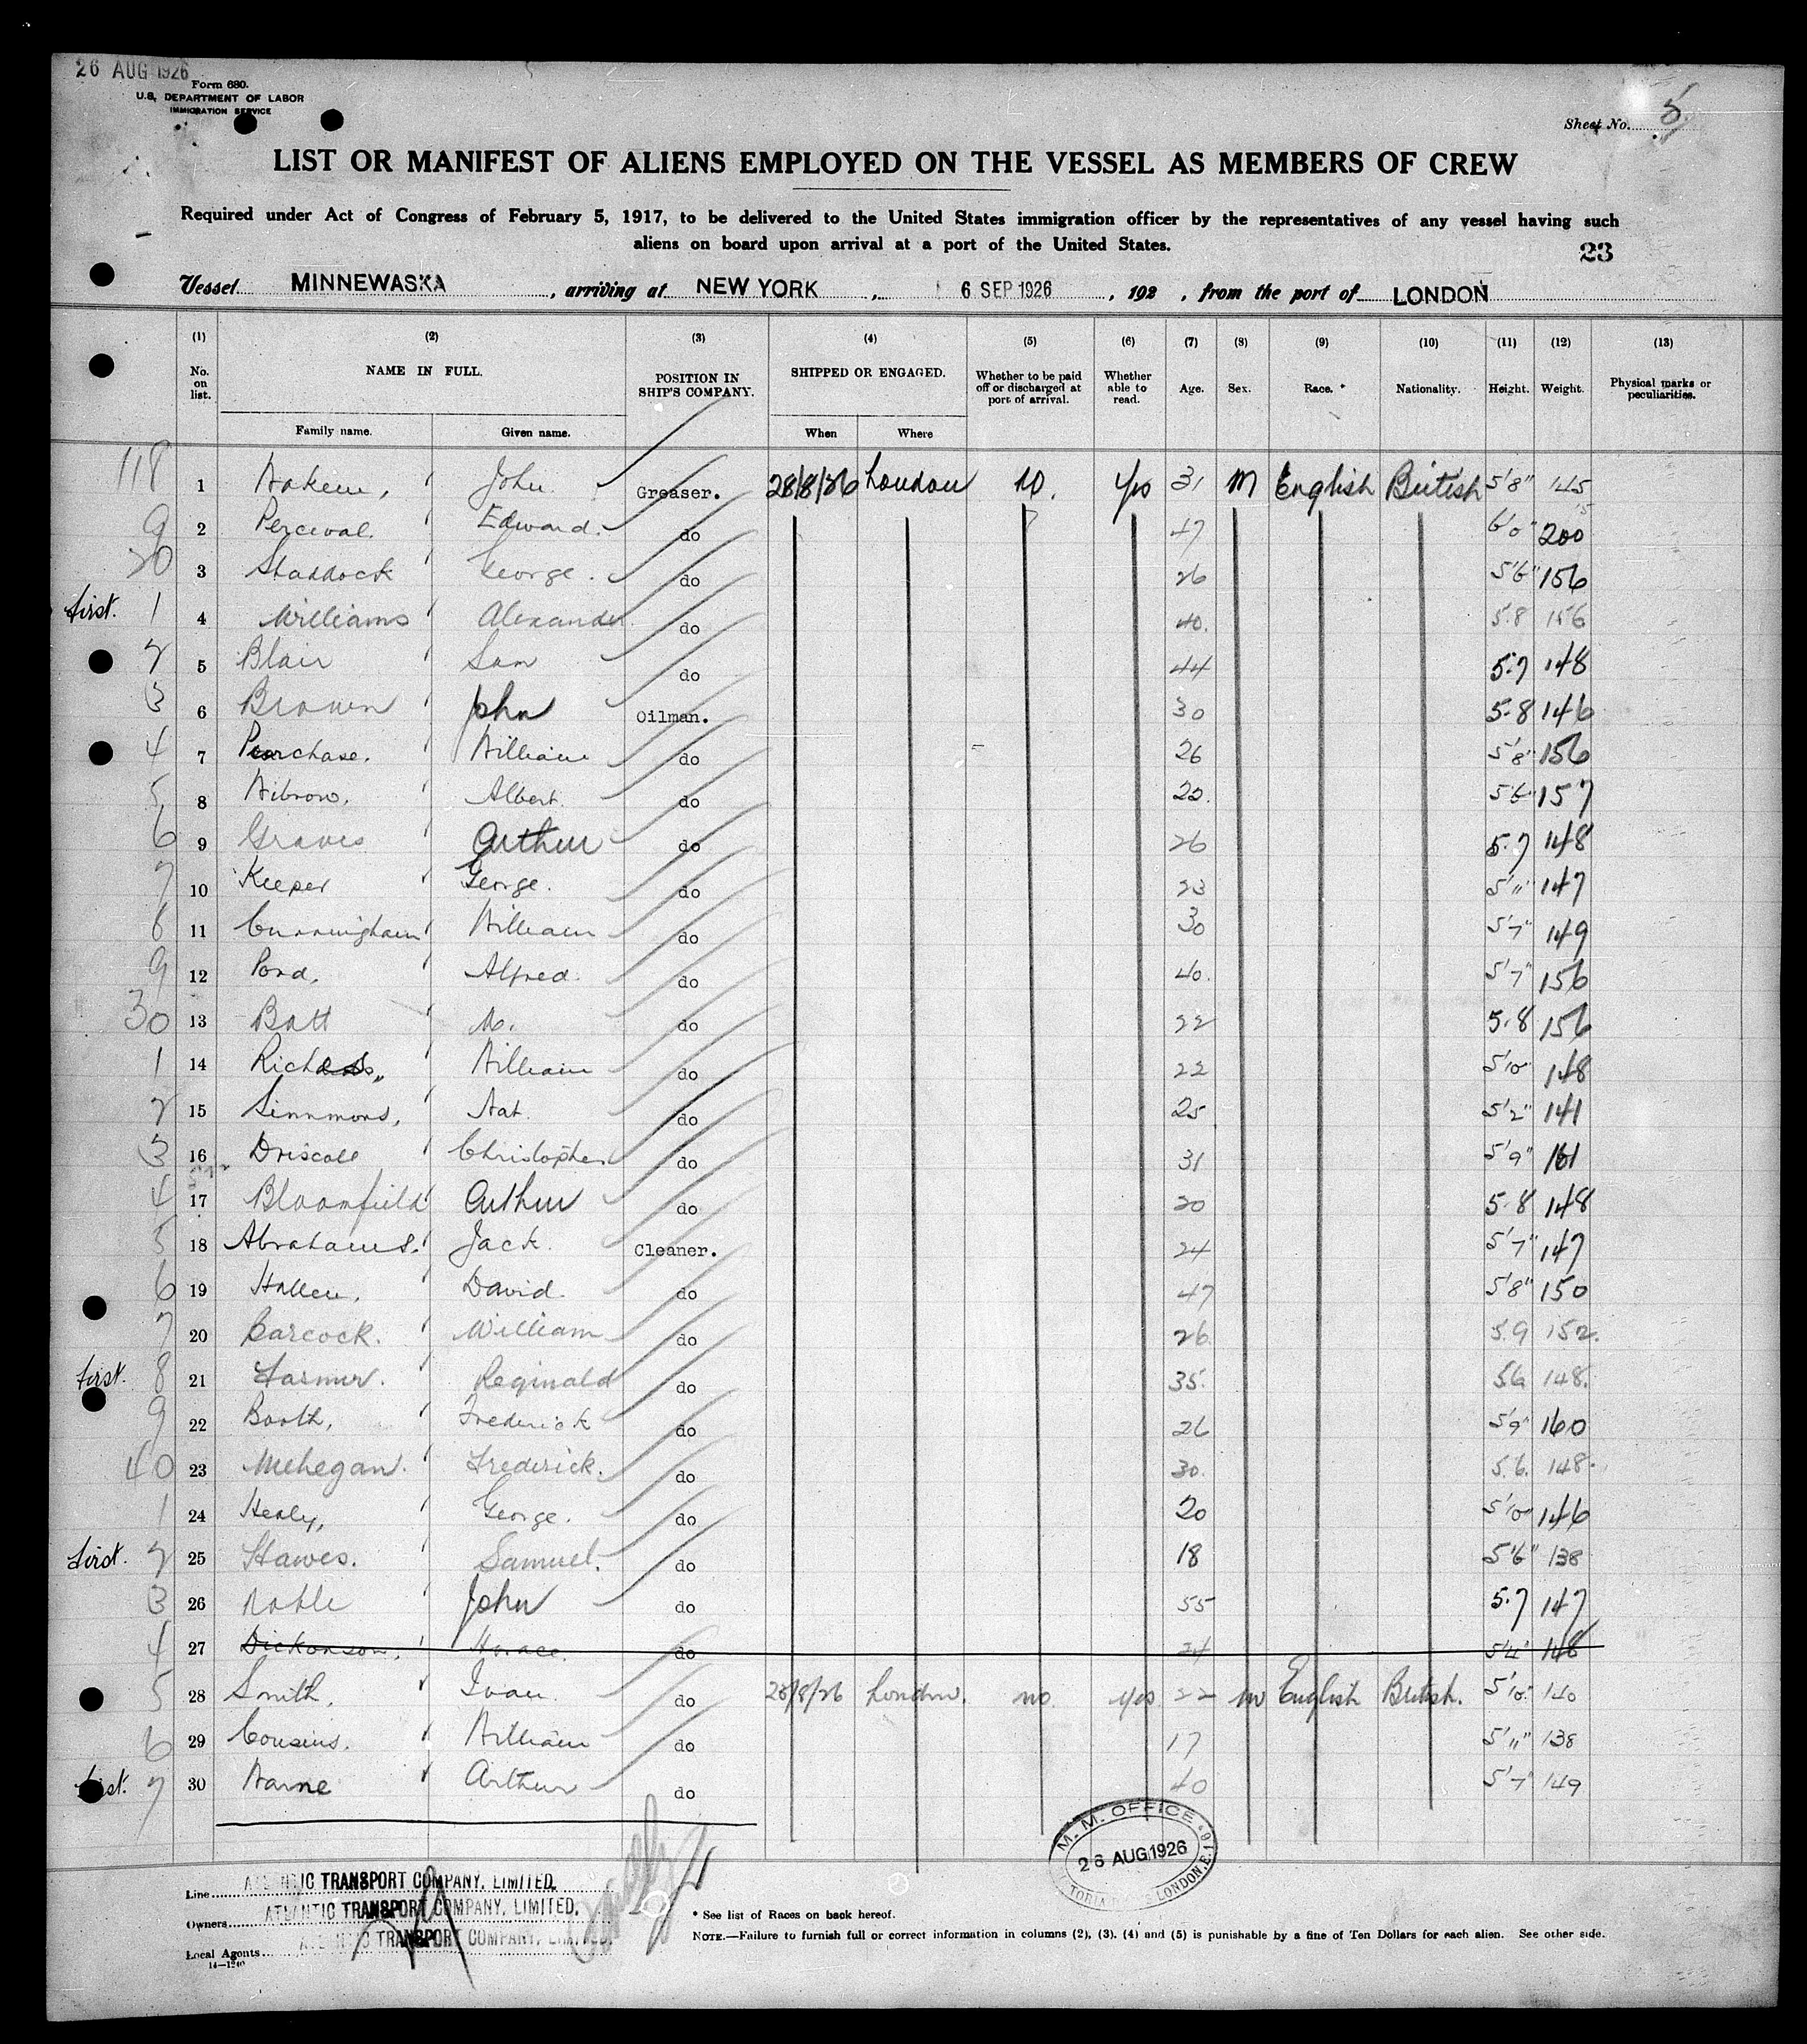 26 AUG 1926
Form 680.
U.S. DEPARTMENT OF LABOR
IMMIGRATION SERVICE
Sheet No. 5
LIST OR MANIFEST OF ALIENS EMPLOYED ON THE VESSEL AS MEMBERS OF CREW
Required under Act of Congress of February 5, 1917, to be delivered to the United States immigration officer by the representatives of any vessel having such
aliens on board upon arrival at a port of the United States.
23
Vessel MINNEWASKA, arriving at NEW YORK, 6 SEP 1926, 192 , from the port of LONDON
(1) (2) (3) (4) (5) (6) (7) (8) (9) (10) (11) (12) (13)
No. on list. NAME IN FULL. POSITION IN SHIP'S COMPANY. SHIPPED OR ENGAGED. Whether to be paid off or discharged at port of arrival. Whether able to read. Age. Sex. Race.* Nationality. Height. Weight. Physical marks or peculiarities.
Family name. Given name. When Where
118 1 John Greaser. 28/8/26 London No. Yes 31 M English British 5'8" 145
9 2 Percival. Edward. do 47 6'0" 200
20 3 George. do 26 5'6" 156
first. 1 4 Williams Alexander do 40. 5.8 156
2 5 Blair Sam do 44 5.7 148
3 6 Brown John Oilman. 30 5.8 146
4 7 Purchase. William do 26 5'8" 156
5 8 Albert. do 20. 5'6 157
6 9 Graves Arthur do 26 5.7 148
7 10 Keeper George. do 23 5'11" 147
8 11 Cunningham William do 30 5'7" 149
9 12 Pond. Alfred. do 40. 5'7" 156
30 13 Batt do 22 5.8 156
1 14 William do 22 5'10" 148
2 15 Simmons, Nat. do 25 5'2" 141
3 16 Driscoll Christopher do 31 5'9" 161
4 17 Bloomfield Arthur do 20 5.8 148
5 18 Abrahams. Jack. Cleaner. 24 5'7" 147
6 19 Hallen. David. do 47 5'8" 150
7 20 Barcock. William do 26. 5.9 152.
first. 8 21 Farmer. Reginald do 35. 5.6 148.
9 22 Booth, Frederick do 26 5'9" 160
40 23 Mehegan. Frederick. do 30. 5.6. 148.
1 24 Healy, George. do 20 5'10" 146
first. 2 25 Hawes. Samuel. do 18 5'6" 138
3 26 Noble John do 55 5.7 147
4 27 Dickonson. Horace. do 24 5'4" 148
5 28 Smith, Ivan. do 28/8/26 London. no. yes 22 M English British. 5'10" 140
6 29 Cousins. William do 17 5'11" 138
first. 7 30 Warne Arthur do 40 5'7" 149
M. M. OFFICE
26 AUG 1926
LONDON, E.
Line ATLANTIC TRANSPORT COMPANY, LIMITED.
Owners ATLANTIC TRANSPORT COMPANY, LIMITED.
Local Agents ATLANTIC TRANSPORT COMPANY, LIMITED.
14—1240
* See list of Races on back hereof.
NOTE.—Failure to furnish full or correct information in columns (2), (3), (4) and (5) is punishable by a fine of Ten Dollars for each alien. See other side.